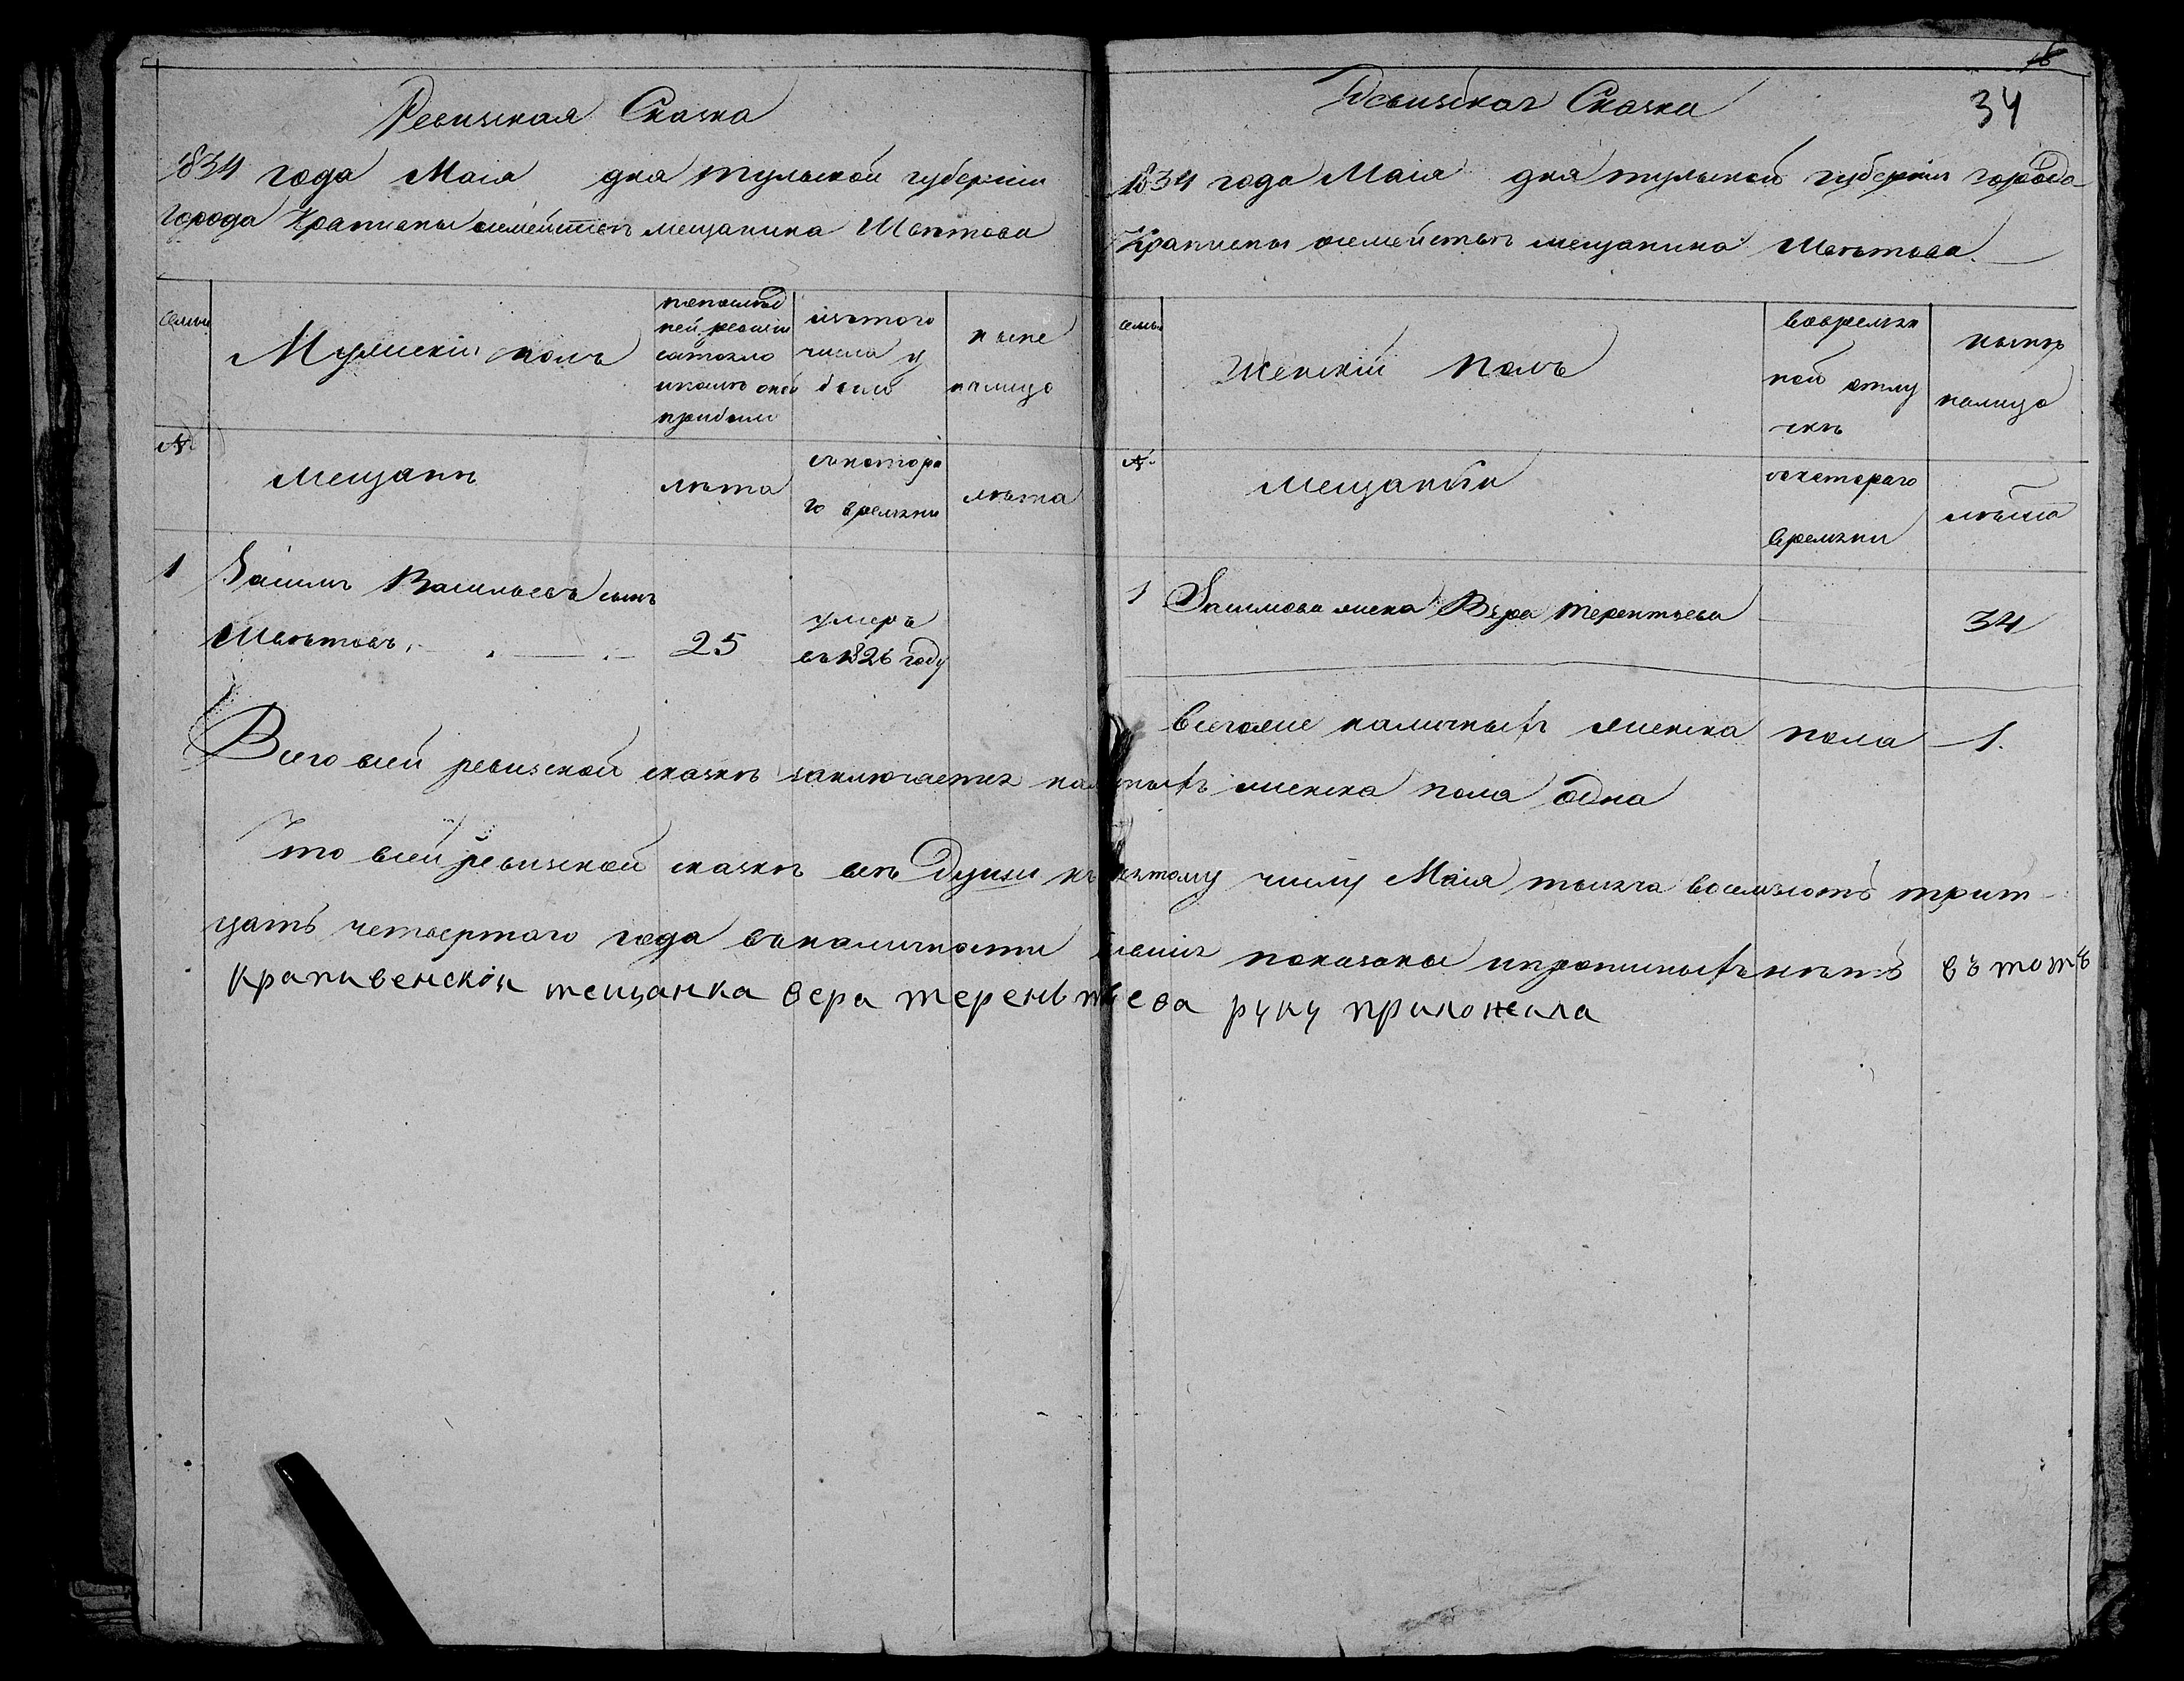 Ревизская Сказка
1834 года Маія дня тульской губерніи
города Крапивны осемействѣ мещанина Шветова
семьи
Мужескій полъ
попослѣд
ней ревизіи
состояло
ипослѣ оной
прибыло
изтого
числа у
было
ныне
налицо
№
мещанѣ
лѣта
съкотора
го времяни
лѣта
1
Васильевъ сынъ
Шветовъ
25
умеръ
въ 1826 году
16
34
Ревизская Сказка
1834 года Маія дня тульской губерніи города
Крапивны осемействѣ мещанина Шветова
семьи
Женскій полъ
вовремян
ной отлу
чкѣ
нынѣ
налицо
№
мещанки
скотораго
времяни
лѣта
1
жена Вера терентьева
34
всегоже наличныхъ женска пола 1.
Всего всей ревизской сказкѣ заключается наличныхъ женска пола одна
Что всей ревизской сказкѣ всѣ души числу Маія тысяча восемьсотъ трит-
цатъ четвертаго года вналичности показаны ипрописныхъ нѣтъ въ томъ
крапивенская мещанка вера терентьева руку приложила